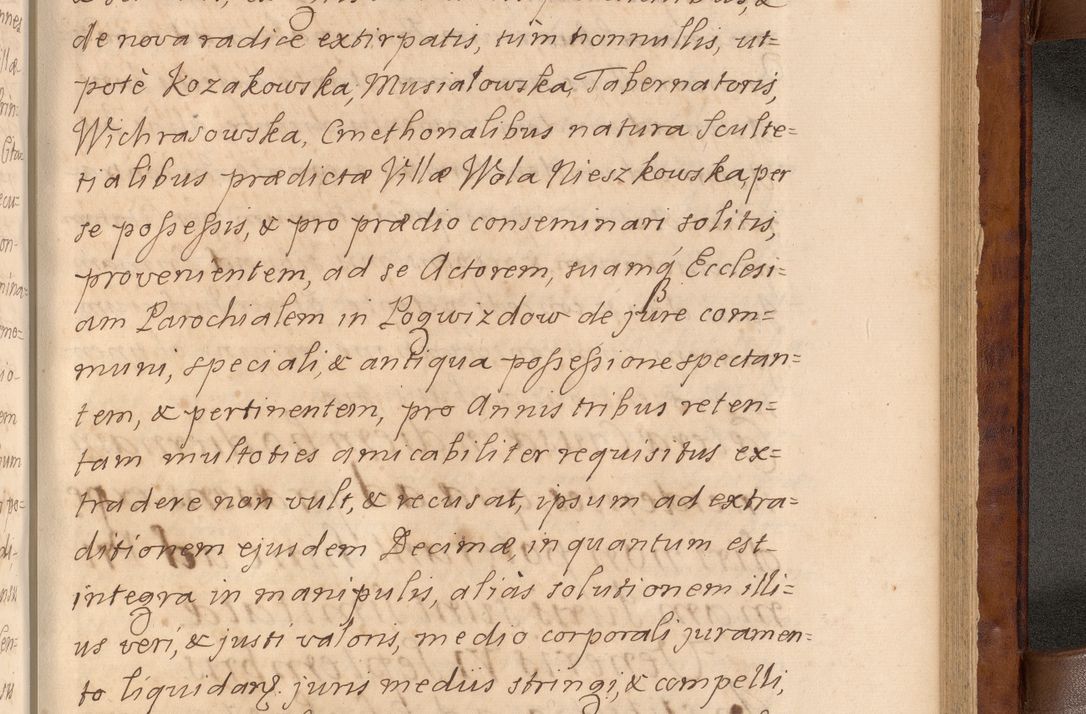 de nova radice extirpatis, tùm nonnullis, ut=
potè Kozakowska, Musiałowska, Tabernatoris,
Wichrasowska, Cmethonalibus natura Sculte=
tialibus prædictæ Villæ Wola Nieszkowska, per
se poſseſsis, & pro prædio conseminari solitis,
provenientem, ad se Actorem, suamq́ Ecclesi=
am Parochialem in Pogwizdow de jure com=
muni, speciali, & antiqua poſseſsione spectan=
tem, & pertinentem, pro Annis tribus reten=
tam multoties amicabiliter requisitus ex=
tradere non vult, & recusat, ipsum ad extra=
ditionem ejusdem Decimæ, in quantum est
integra in manipulis, aliàs solutionem illi=
us veri, & justi valoris, medio corporali juramen=
to liquidanꝝ juris mediis stringi, & compelli,